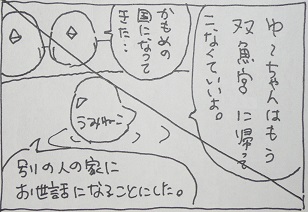 ゆーちゃんはもう
双魚宮に帰って
こなくていいよ。
かもめの
国になって
きた…
うみねこ
別の人の家に
お世話になることにした。